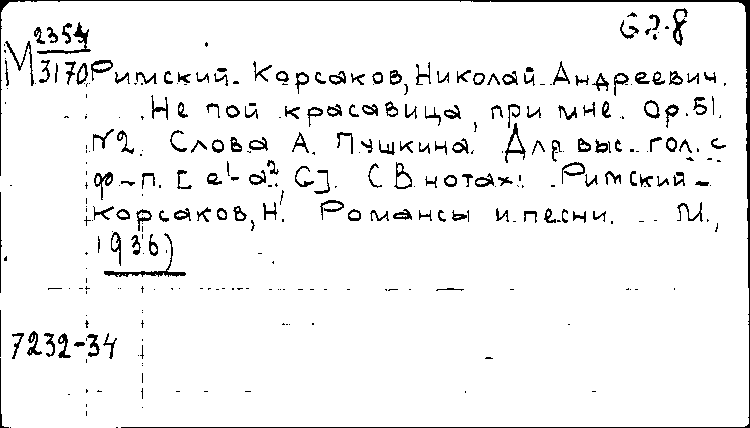 G2.8
М 2354
3170 Римский-Корсаков, Николай Андреевич.
Не пой красавица, при мне. Op. 51.
№2. Слова А. Пушкина. Для выс. гол. с
ф-п. [e¹-a², G]. (В нотах: Римский-
Корсаков, Н. Романсы и песни. М.,
1936)
7232-34